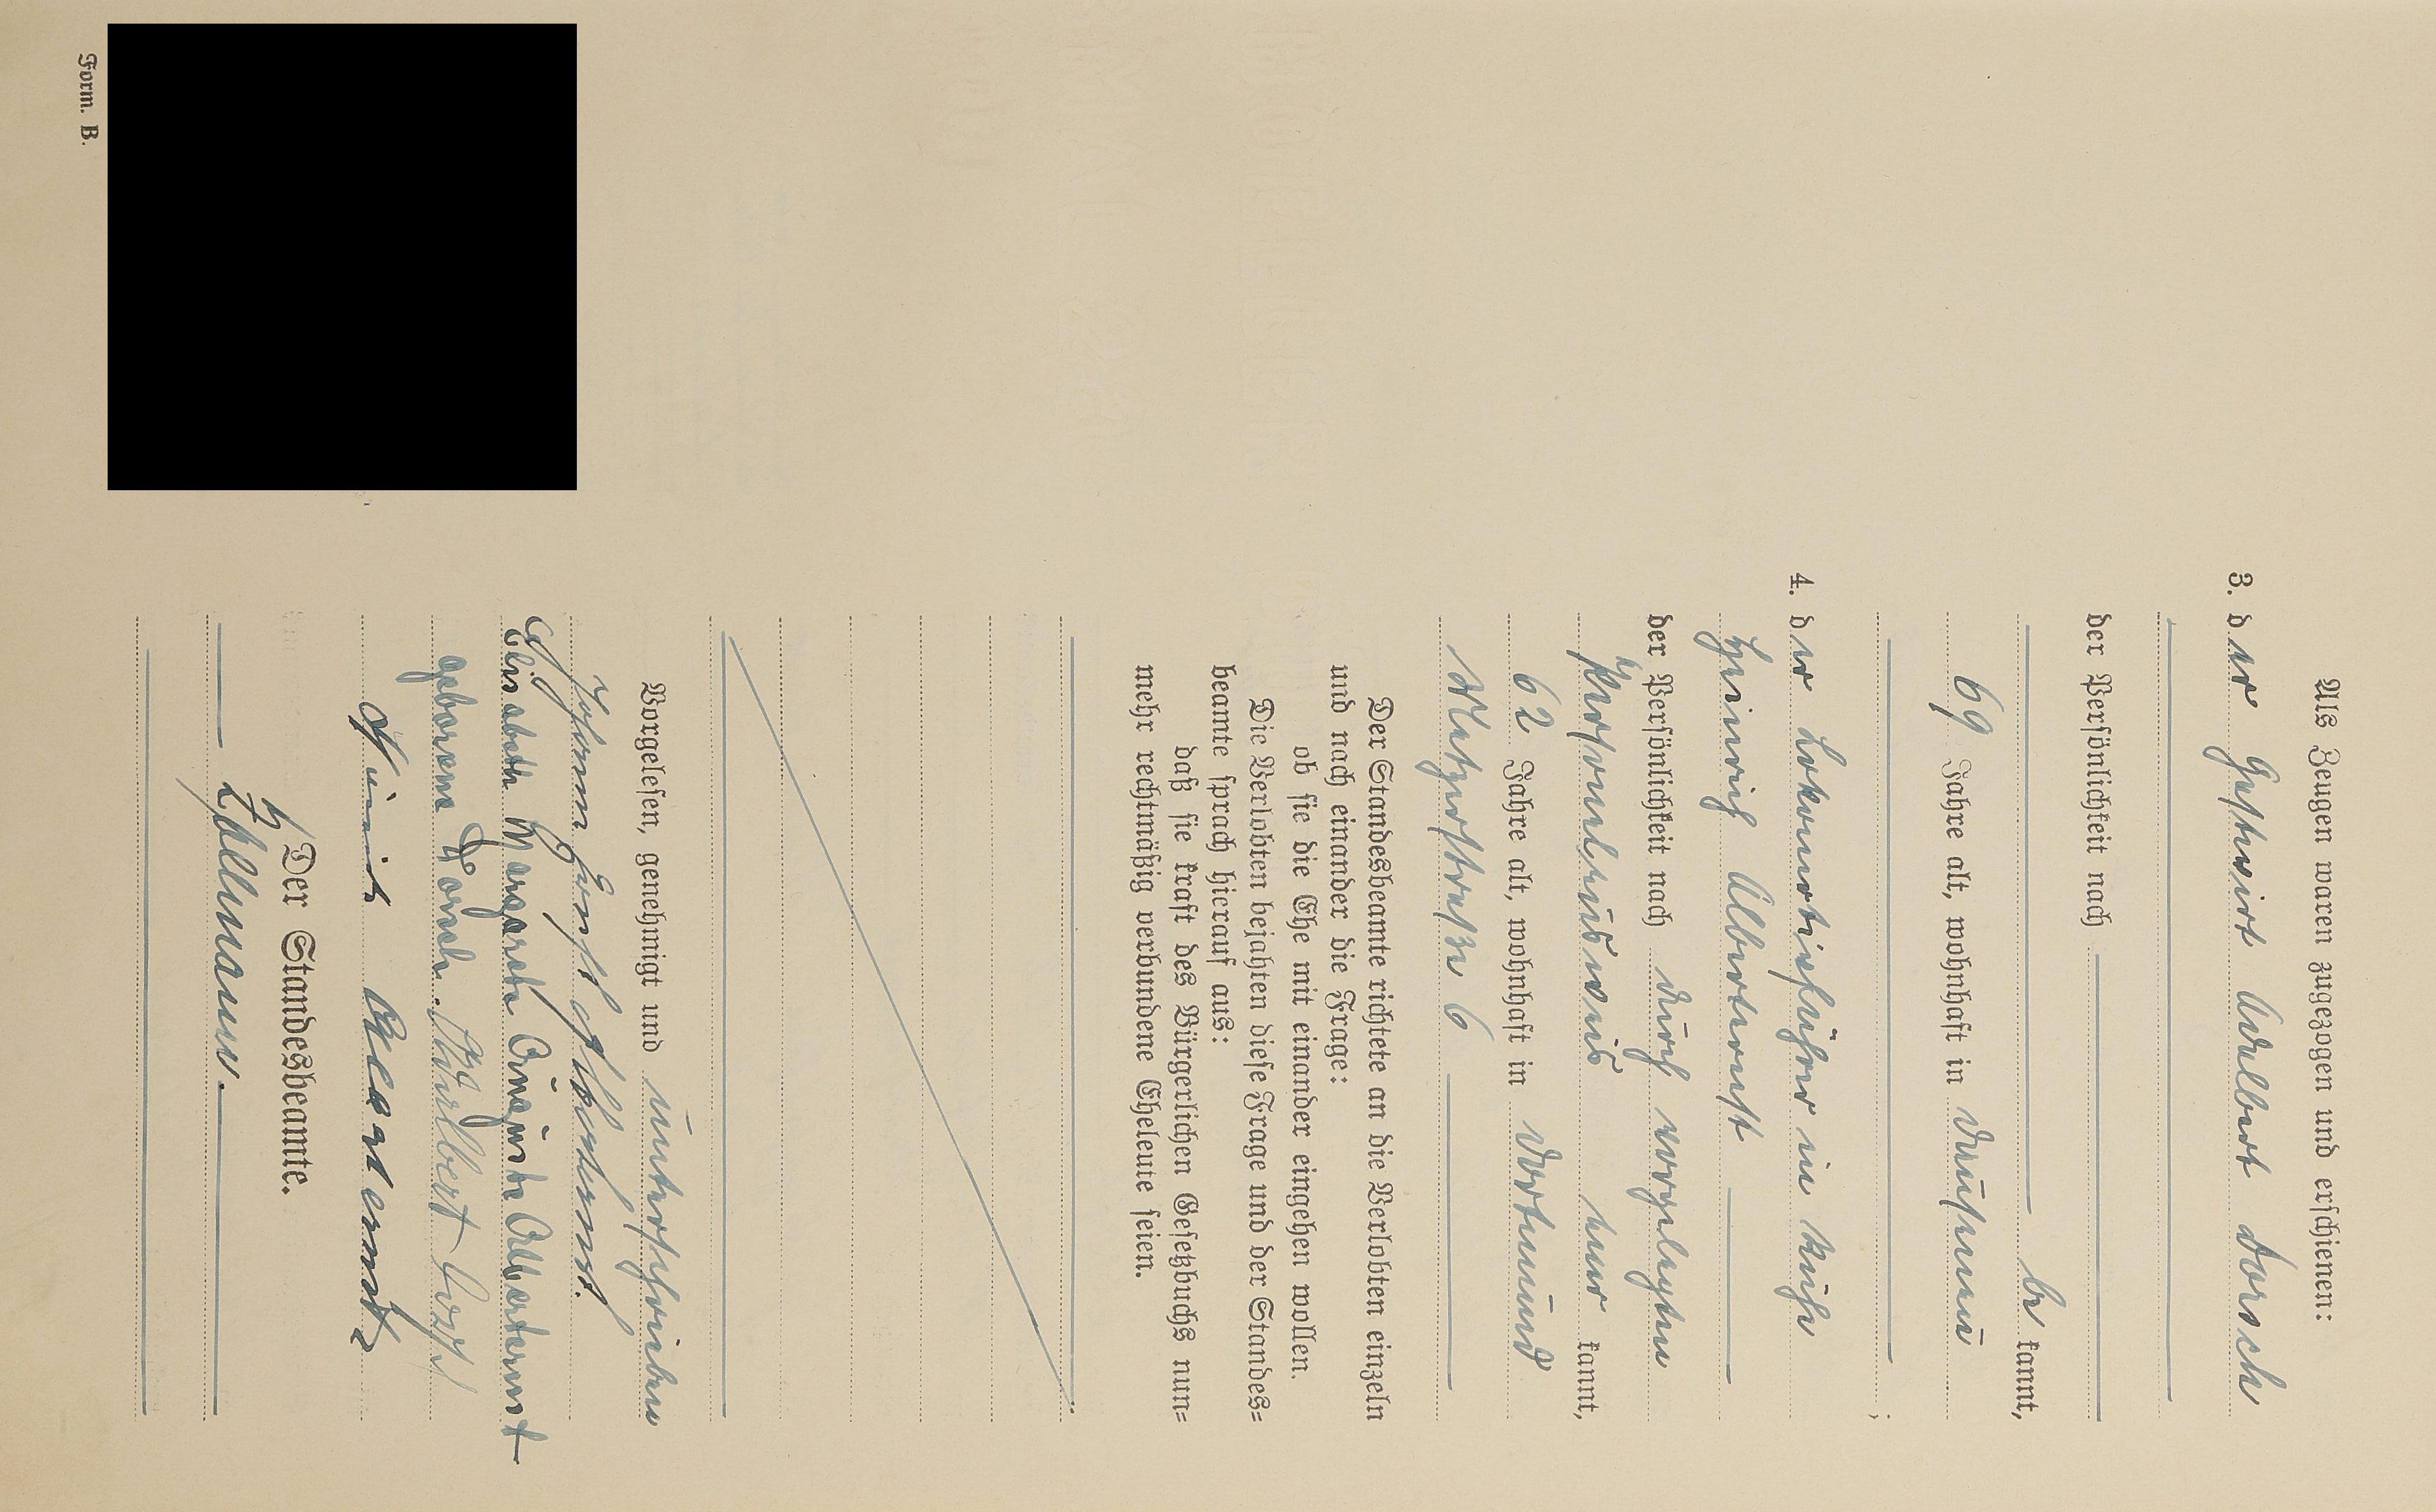 Als Zeugen waren zugezogen und erschienen:
3. der Gastwirt Adelbert Dorsch
der Persönlichkeit nach
be kannt,
69 Jahre alt, wohnhaft in
4. der Lokomotivführer in Ruhe
Heinrich Alberternst
der Persönlichkeit nach durch vorgelegten
Personalausweis aner kannt,
62 Jahre alt, wohnhaft in Dortmund
straße 6
Der Standesbeamte richtete an die Verlobten einzeln
und nach einander die Frage:
ob sie die Ehe mit einander eingehen wollen.
Die Verlobten bejahten diese Frage und der Standes=
beamte sprach hierauf aus:
daß sie kraft des Bürgerlichen Gesetzbuchs nun=
mehr rechtmäßig verbundene Eheleute seien.
Vorgelesen, genehmigt und unterschrieben
Johann Alberternst.
Elisabeth Margareta Auguste Alberternst
geborene Dorsch. Adelbert Dorsch
Heinrich Alberternst
Der Standesbeamte.
Zollmann.
Form. B.